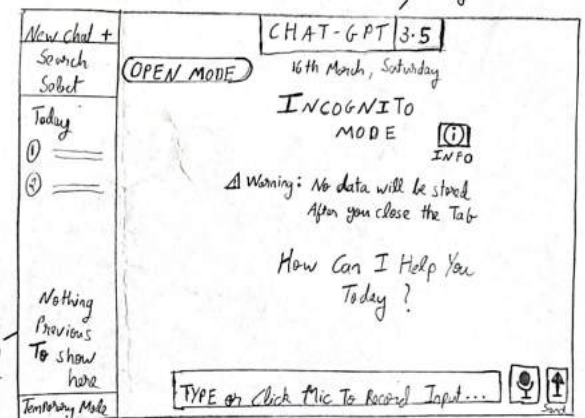 New chat +
Search
Select
Today
①
②
Nothing
Previous
To show
here
Temporary Mode
CHAT-GPT 3.5
16th March, Saturday
OPEN MODE
INCOGNITO
MODE
INFO
⚠ Warning: No data will be stored
After you close the Tab
How Can I Help You
Today ?
TYPE or Click Mic To Record Input...
Send